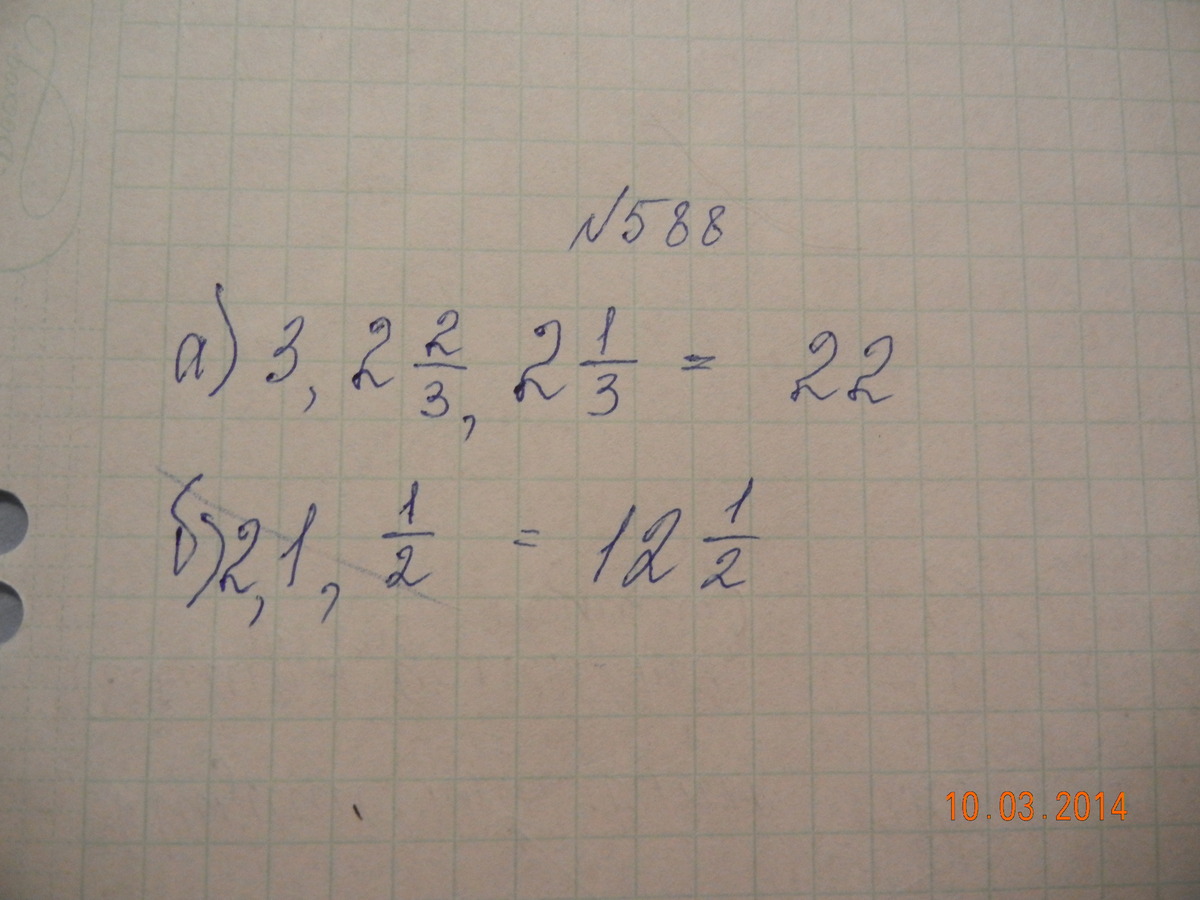 №588
а) 3, 2 2/3, 2 1/3 = 22
б) 2, 1, 1/2 = 12 1/2
10.03.2014